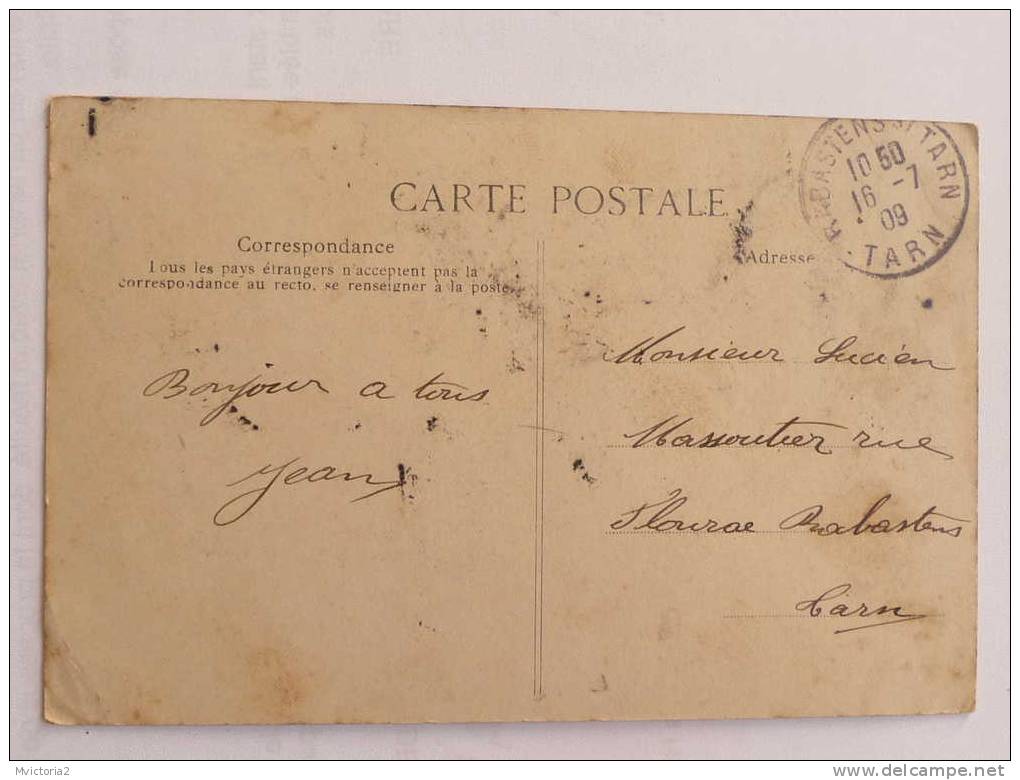 CARTE POSTALE
Correspondance
Tous les pays étrangers n'acceptent pas la
correspondance au recto, se renseigner à la poste
Bonjour a tous
Jean
RABASTENS Sr TARN
10 50
16 - 7
09
TARN
Adresse
Monsieur Lucien
Massoutier rue
Rabastens
Tarn
Mvictoria2
www.delcampe.net